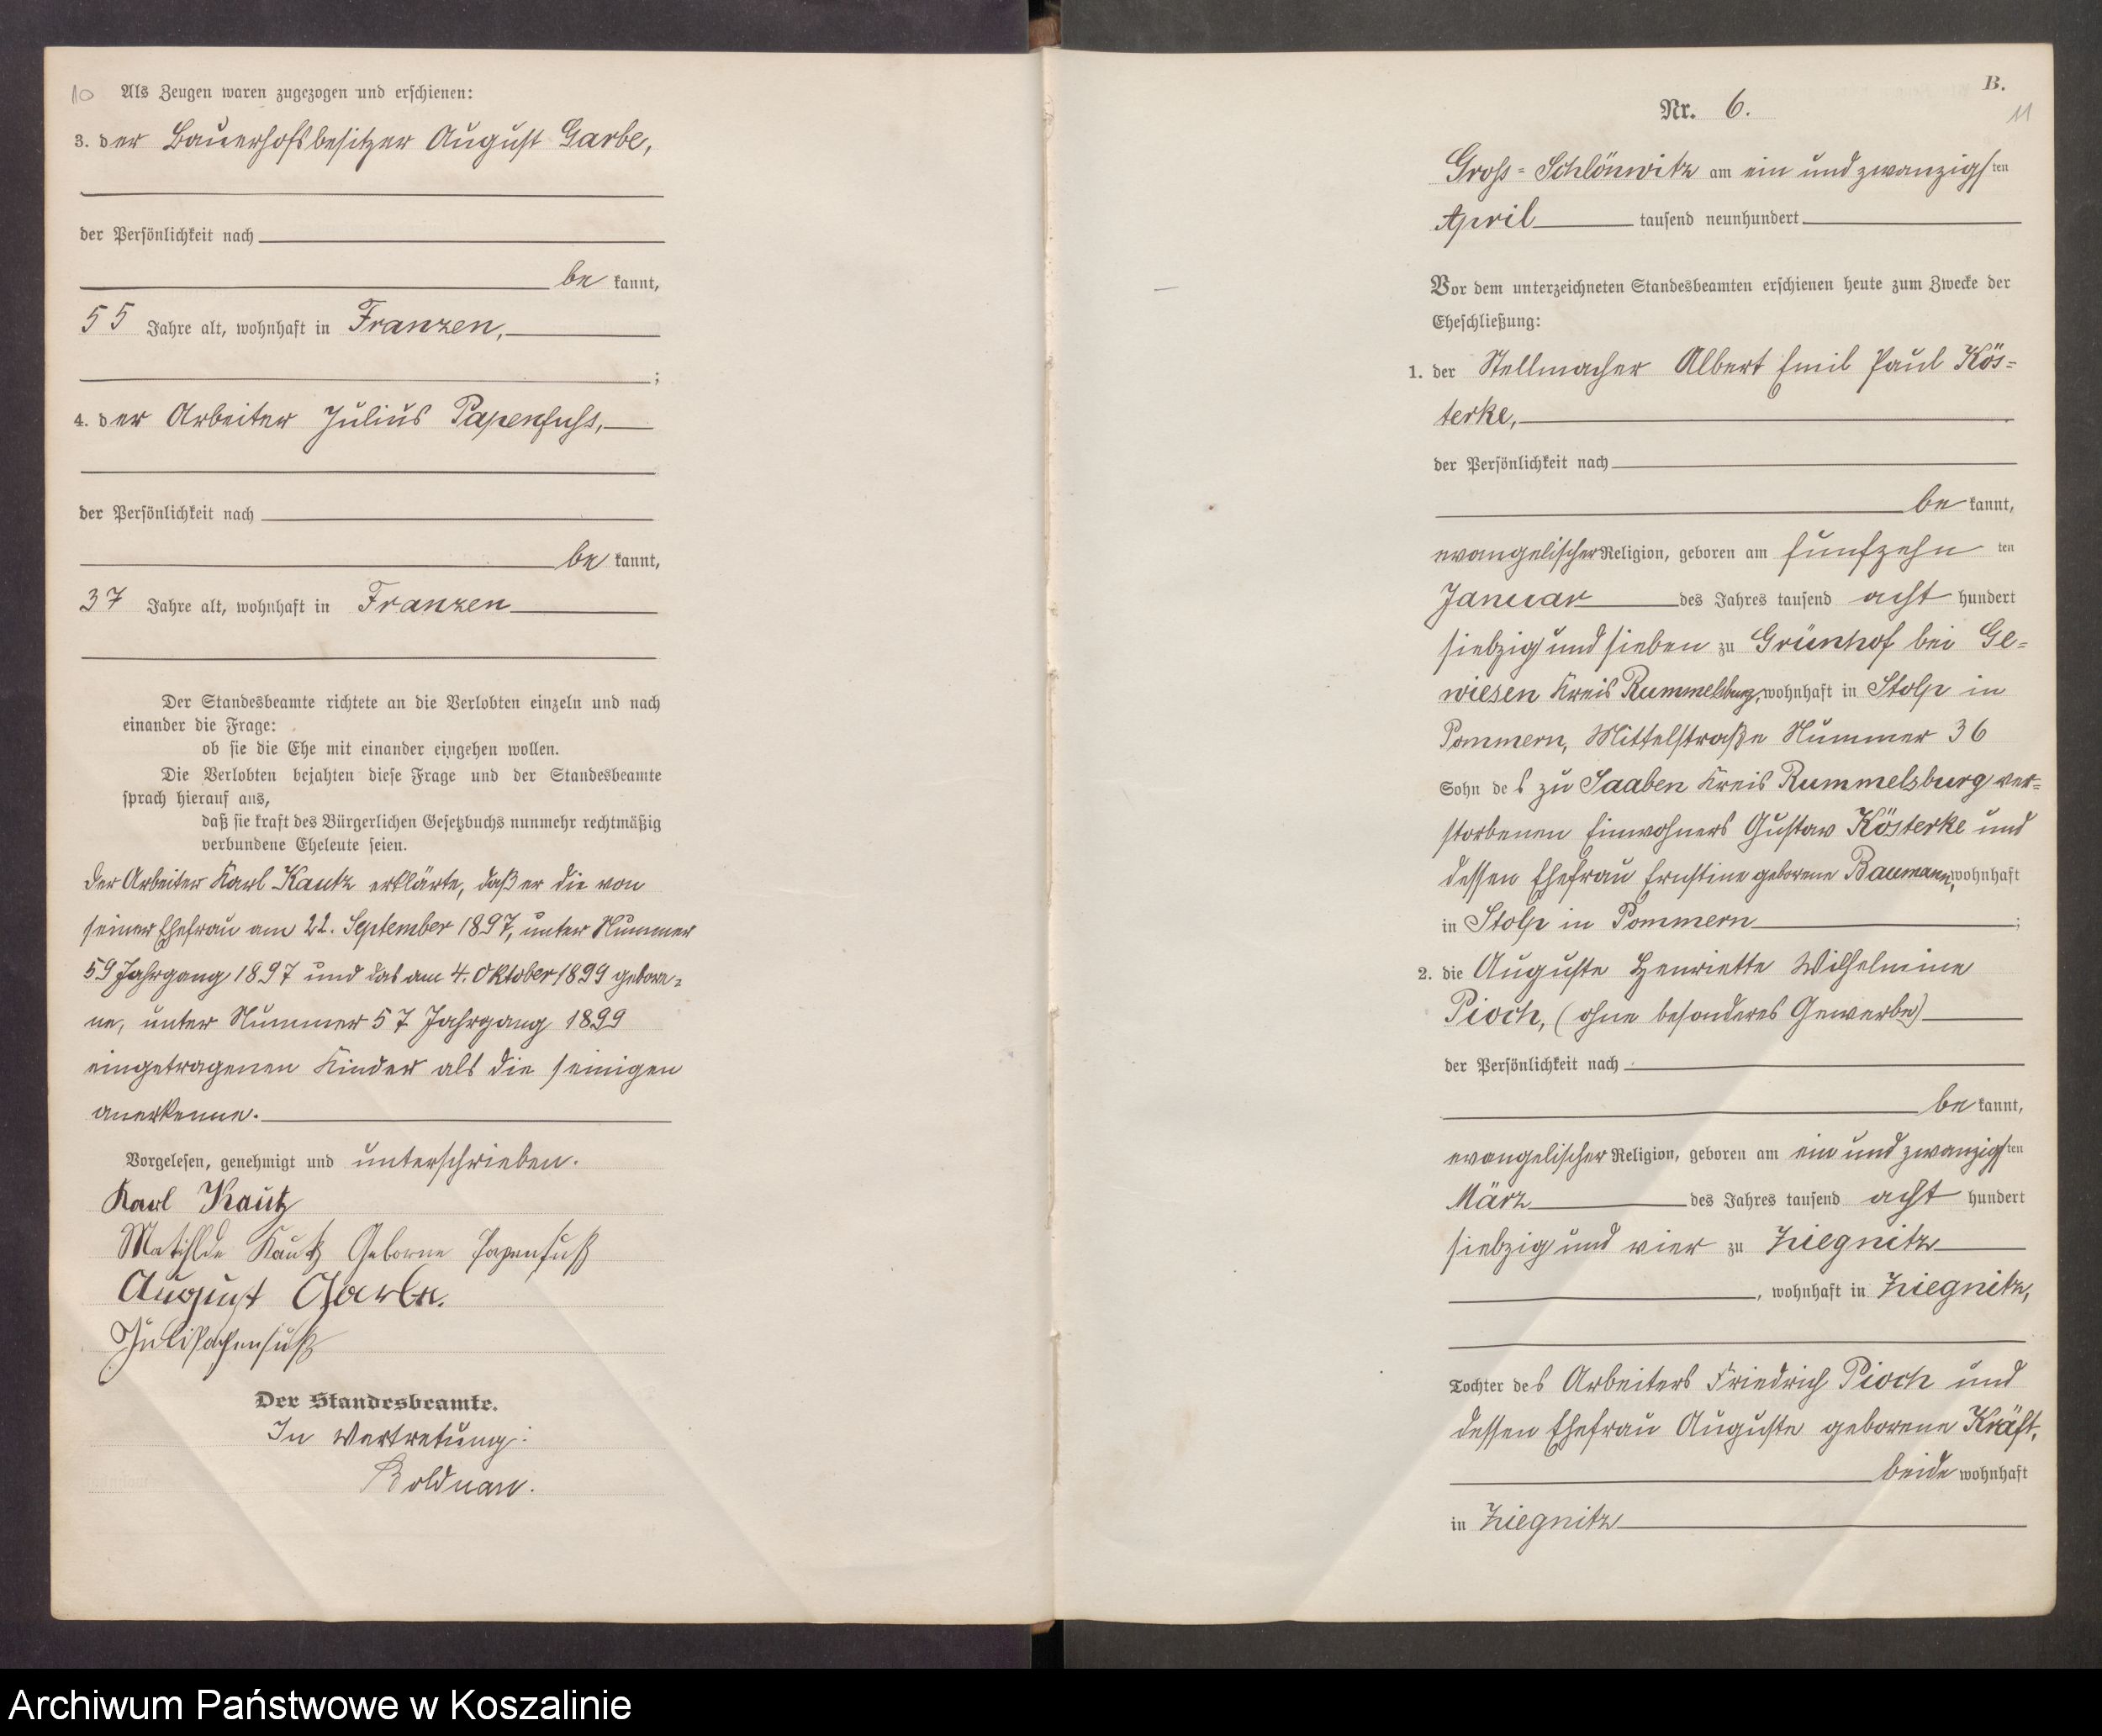 10 Als Zeugen waren zugezogen und erschienen:
3. der Bauerhofsbesitzer August Garbe,
der Persönlichkeit nach
be kannt,
55 Jahre alt, wohnhaft in Franzen,
;
4. der Arbeiter Julius Papenfuhs,
der Persönlichkeit nach
be kannt,
37 Jahre alt, wohnhaft in Franzen
Der Standesbeamte richtete an die Verlobten einzeln und nach
einander die Frage:
ob sie die Ehe mit einander eingehen wollen.
Die Verlobten bejahten diese Frage und der Standesbeamte
sprach hierauf aus,
daß sie kraft des Bürgerlichen Gesetzbuchs nunmehr rechtmäßig
verbundene Eheleute seien.
Der Arbeiter Karl Kautz erklärte, daß er die von
seiner Ehefrau am 22. September 1897, unter Nummer
59 Jahrgang 1897 und das am 4. Oktober 1899 gebore-
ne, unter Nummer 57 Jahrgang 1899
eingetragenen Kinder als die seinigen
anerkenne.
Vorgelesen, genehmigt und unterschrieben.
Karl Kautz
Mathilde Kautz Geborne Papenfuß
August Garbe.
Juli Papenfuß
Der Standesbeamte.
In Vertretung:
Boldnau.
B.
11
Nr. 6.
Gross-Schlönwitz am ein und zwanzigsten
April tausend neunhundert
Vor dem unterzeichneten Standesbeamten erschienen heute zum Zwecke der
Eheschließung:
1. der Stellmacher Albert Emil Paul Kös-
terke,
der Persönlichkeit nach
be kannt,
evangelischer Religion, geboren am fünfzehn ten
Januar des Jahres tausend acht hundert
siebzig und sieben zu Grünhof bei Ge-
wiesen Kreis Rummelsburg, wohnhaft in Stolp in
Pommern, Mittelstraße Nummer 36
Sohn des zu Saaben Kreis Rummelsburg ver-
storbenen Einwohners Gustav Kösterke und
dessen Ehefrau Ernstine geborene Baumann, wohnhaft
in Stolp in Pommern ;
2. die Auguste Henriette Wilhelmine
Pioch, (ohne besonderes Gewerbe)
der Persönlichkeit nach
be kannt,
evangelischer Religion, geboren am ein und zwanzigsten
März des Jahres tausend acht hundert
siebzig und vier zu Ziegnitz
, wohnhaft in Ziegnitz,
Tochter des Arbeiters Friedrich Pioch und
dessen Ehefrau Auguste geborene Kräft,
beide wohnhaft
in Ziegnitz
Archiwum Państwowe w Koszalinie